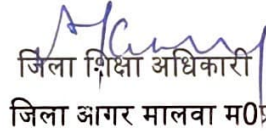 जिला शिक्षा अधिकारी
जिला आगर मालवा म0प्र